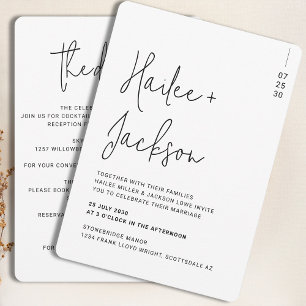 Hailee +
Jackson
07
25
30
TOGETHER WITH THEIR FAMILIES
HAILEE MILLER & JACKSON LOWE INVITE
YOU TO CELEBRATE THEIR MARRIAGE
25 JULY 2030
AT 3 O'CLOCK IN THE AFTERNOON
STONEBRIDGE MANOR
1234 FRANK LLOYD WRIGHT, SCOTTSDALE AZ
the d
THE CELEB
JOIN US FOR COCKTAIL
RECEPTION F
SKY
1257 WILLOWB
FOR YOUR CONVE
PLEASE BOOK
RESERVA